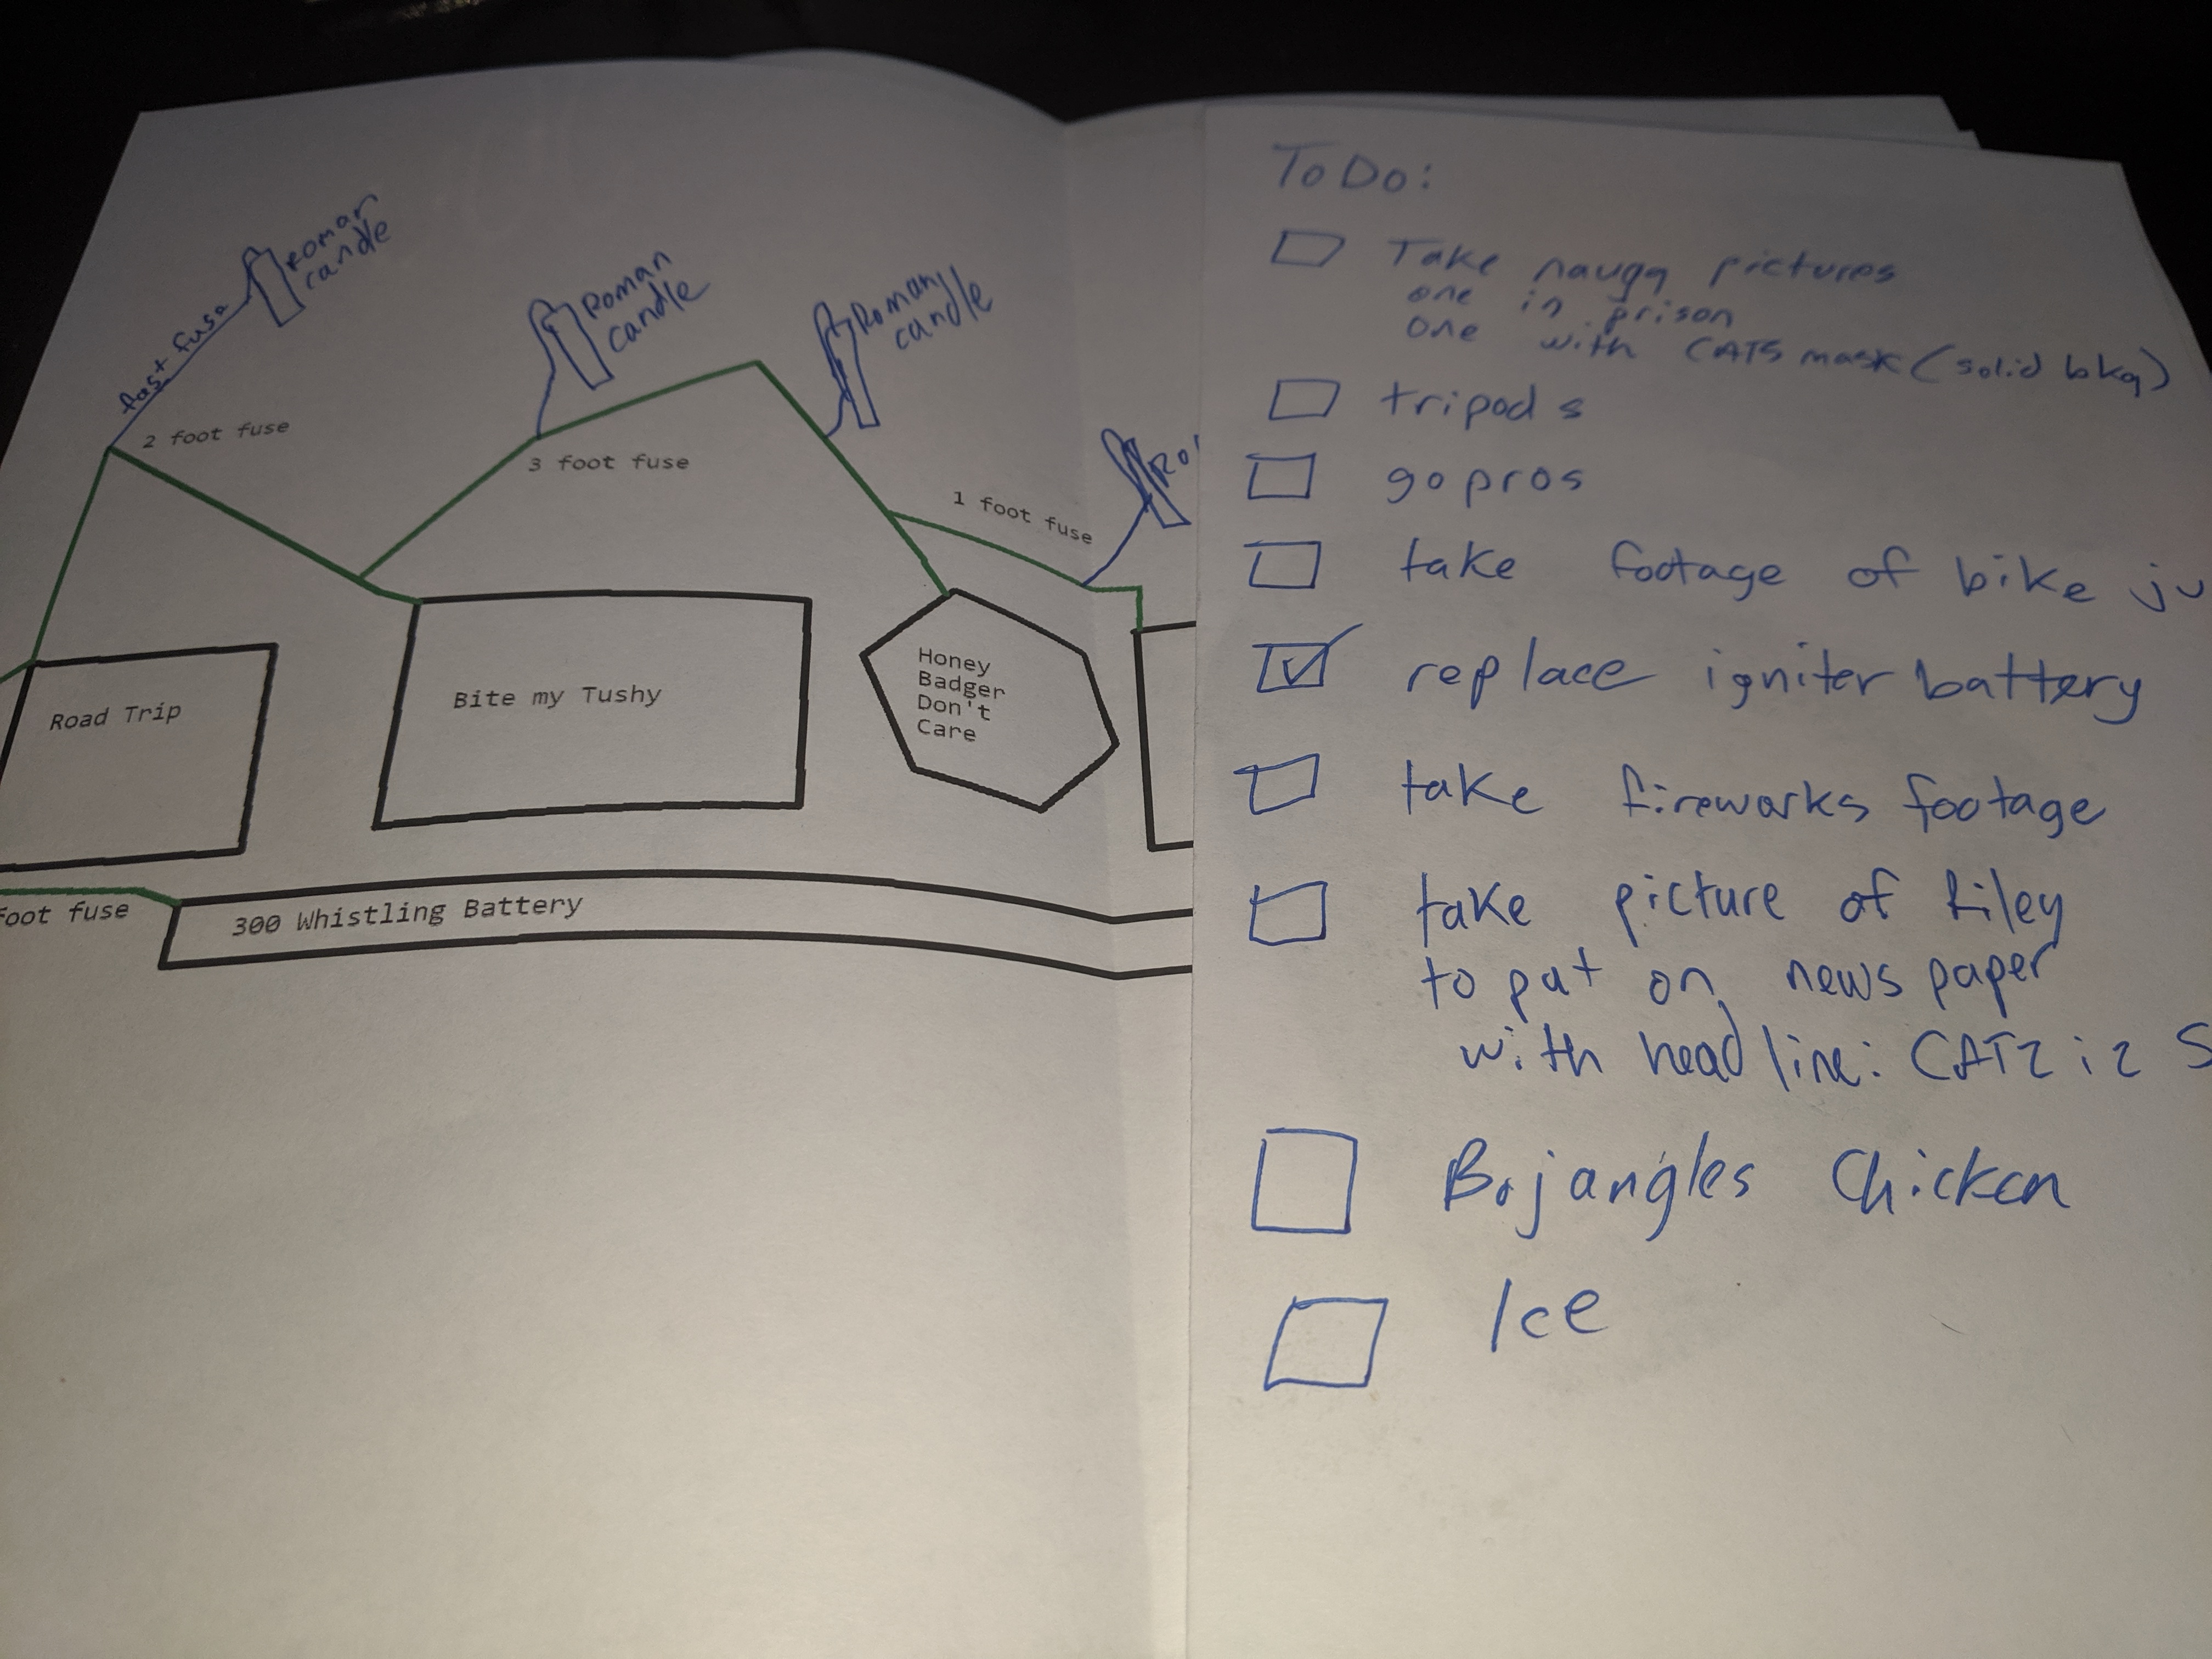 Roman
candle
fast fuse
2 foot fuse
Roman
candle
3 foot fuse
Roman
candle
1 foot fuse
Ro
Road Trip
Bite my Tushy
Honey
Badger
Don't
Care
foot fuse
300 Whistling Battery
To Do:
Take naugg pictures
one in prison
one with CATS mask (solid bkg)
tripods
go pros
take footage of bike ju
replace igniter battery
take fireworks footage
take picture of Riley
to put on news paper
with headline: CATZ iz S
Bojangles Chicken
Ice